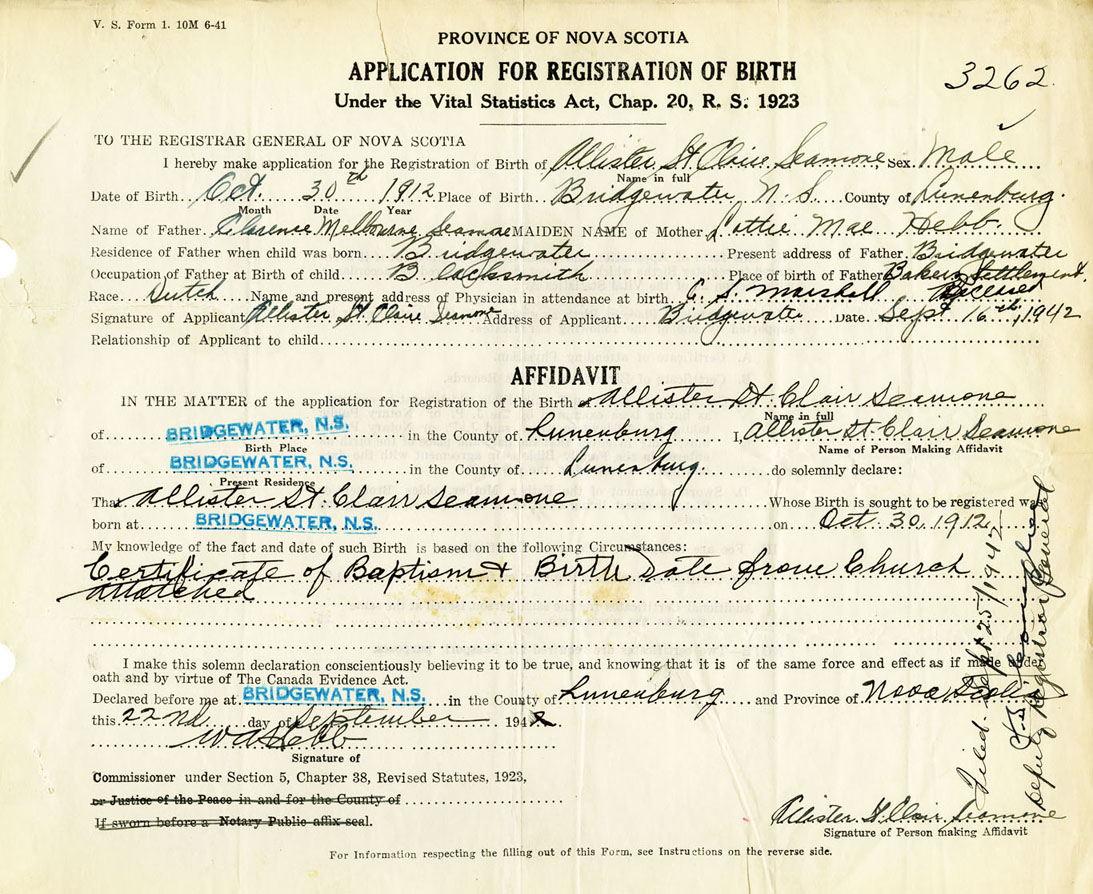 V. S. Form 1. 10M 6-41
PROVINCE OF NOVA SCOTIA
APPLICATION FOR REGISTRATION OF BIRTH
3262.
Under the Vital Statistics Act, Chap. 20, R. S. 1923
TO THE REGISTRAR GENERAL OF NOVA SCOTIA
I hereby make application for the Registration of Birth of Allister St Claire Seamone Sex Male
Name in full
Date of Birth Oct. 30rd 1912 Place of Birth Bridgewater N. S. County of Lunenburg.
Month Date Year
Name of Father Clarence Melbourne Seamone MAIDEN NAME of Mother Lottie Mae Hebb.
Residence of Father when child was born Bridgewater Present address of Father Bridgewater
Occupation of Father at Birth of child Blacksmith Place of birth of Father Bakers Settlement.
Race Dutch Name and present address of Physician in attendance at birth C. S. Marshall Deceased
Signature of Applicant Allister St Claire Seamone Address of Applicant Bridgewater Date Sept 16th, 1942
Relationship of Applicant to child
AFFIDAVIT
IN THE MATTER of the application for Registration of the Birth of Allister St. Clair Seamone
Name in full
of BRIDGEWATER, N.S. in the County of Lunenburg I, Allister St. Clair Seamone
Birth Place Name of Person Making Affidavit
of BRIDGEWATER, N.S. in the County of Lunenburg. do solemnly declare:
Present Residence
That Allister St. Clair Seamone Whose Birth is sought to be registered was
born at BRIDGEWATER, N.S. on Oct. 30, 1912
My knowledge of the fact and date of such Birth is based on the following Circumstances:
Certificate of Baptism + Birth Date from Church
attatched
I make this solemn declaration conscientiously believing it to be true, and knowing that it is of the same force and effect as if made under
oath and by virtue of The Canada Evidence Act.
Declared before me at BRIDGEWATER, N.S. in the County of Lunenburg and Province of Nova Scotia
this 22nd day of September 1942
W A Hebb
Signature of
Commissioner under Section 5, Chapter 38, Revised Statutes, 1923,
or Justice of the Peace in and for the County of
If sworn before a Notary Public affix seal.
Allister St. Clair Seamone
Signature of Person making Affidavit
For Information respecting the filling out of this Form, see Instructions on the reverse side.
Filed. Sept. 25/1942
Deputy Registrar General